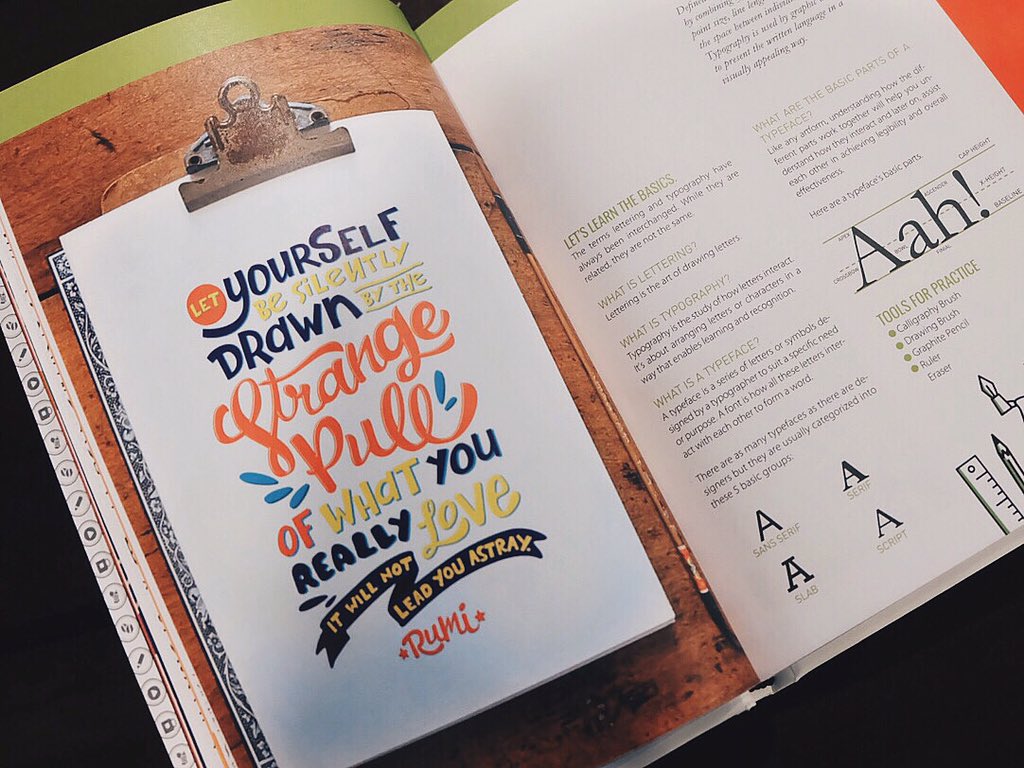 LET YOURSELF
BE SILENTLY
DRAWN BY THE
Strange
Pull
OF WHAT YOU
REALLY Love
IT WILL NOT
LEAD YOU ASTRAY.
Rumi
by combining
point size, line leng
the space between individ
Typography is used by graphic
to present the written language in a
visually appealing way.
LET'S LEARN THE BASICS.
The terms lettering and typography have
always been interchanged. While they are
related, they are not the same.
WHAT IS LETTERING?
Lettering is the art of drawing letters
WHAT IS TYPOGRAPHY?
Typography is the study of how letters interact.
It's about arranging letters or characters in a
way that enables learning and recognition.
WHAT IS A TYPEFACE?
A typeface is a series of letters or symbols de-
signed by a typographer to suit a specific need
or purpose. A font is how all these letters inter-
act with each other to form a word.
There are as many typefaces as there are de-
signers but they are usually categorized into
these 5 basic groups:
A
SANS SERIF
A
SERIF
A
SLAB
A
SCRIPT
WHAT ARE THE BASIC PARTS OF A
TYPEFACE?
Like any artform, understanding how the dif-
ferent parts work together will help you un-
derstand how they interact and later on, assist
each other in achieving legibility and overall
effectiveness.
Here are a typeface's basic parts.
CAP HEIGHT
ASCENDER
X-HEIGHT
APEX
Aah!
BASELINE
BOWL
CROSSBAR
FINIAL
TOOLS FOR PRACTICE
Calligraphy Brush
Drawing Brush
Graphite Pencil
Ruler
Eraser